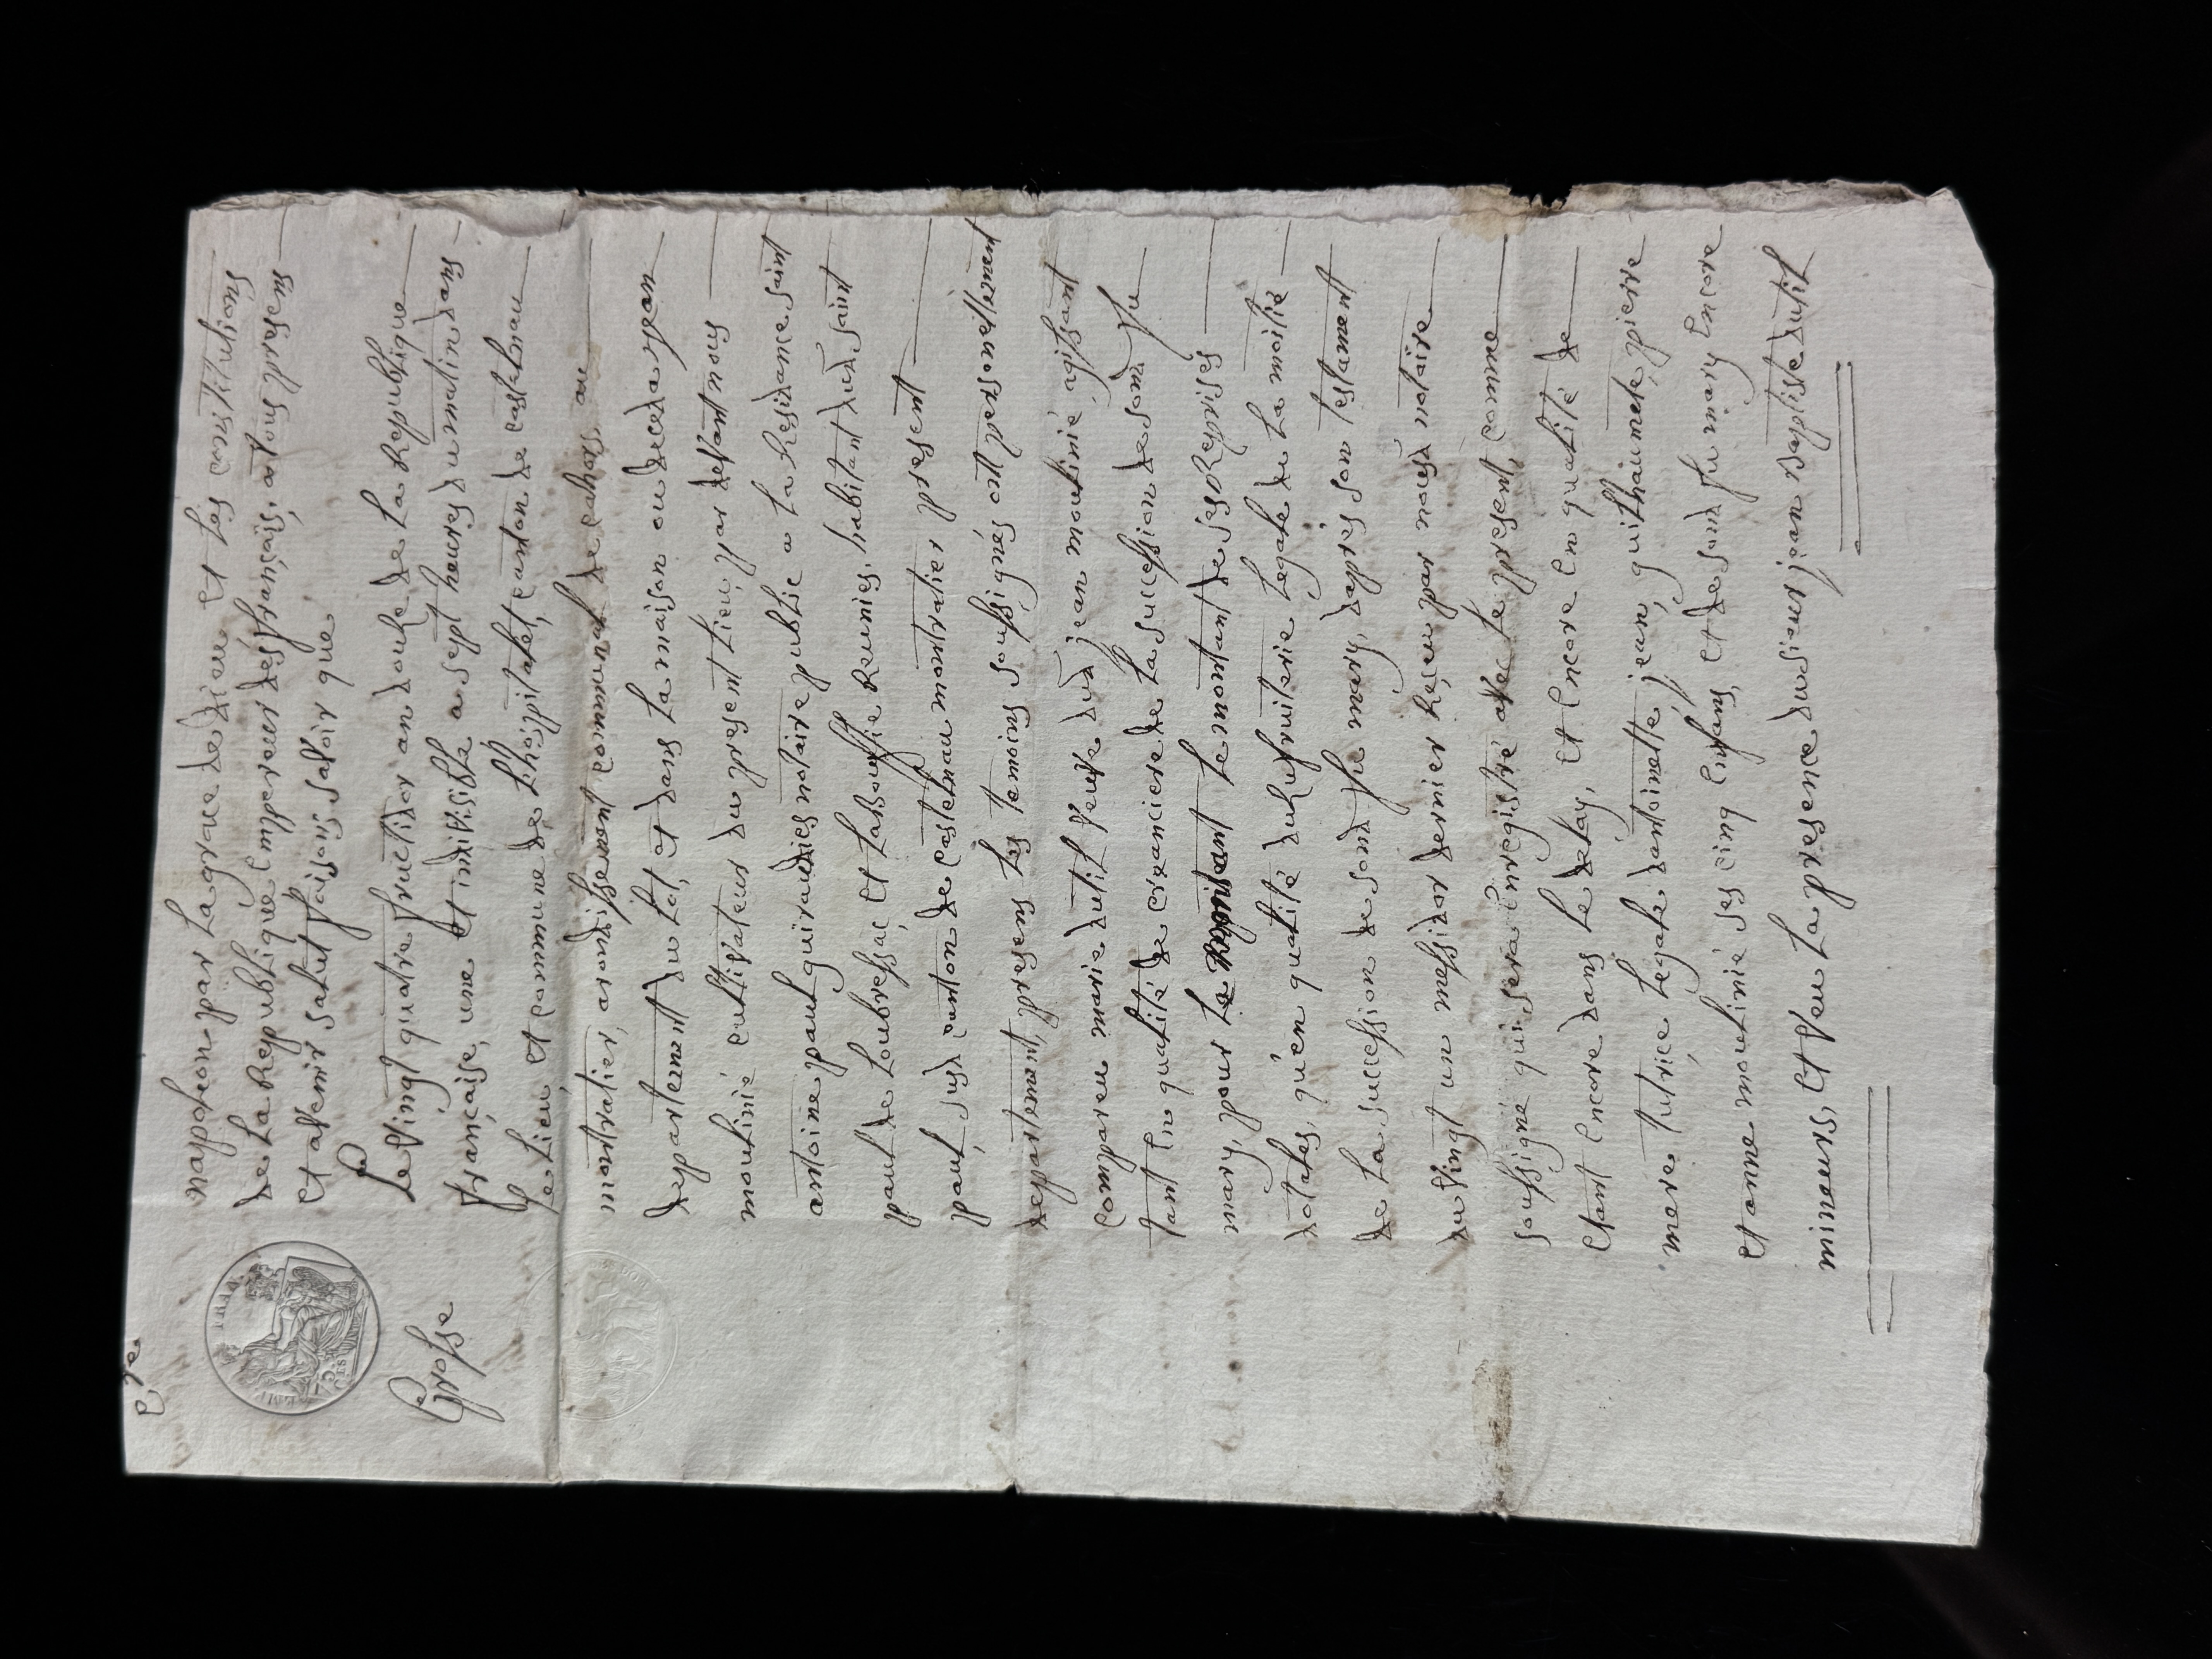 Gosse
napoleon par La grace de dieu et les constitutions
de La Republique Empereur des français, a tous presens
et avenir salut faisons savoir que
Le vingt quatre fructidor an douze de La Republique
française, une et indivisible a sept heures du matin dans
Le Lieu et commune de L'hospitalet, canton de castelnau
montratier, arondissement communal de cahors, au
departement du Lot, et dans La maison ou decéda jean
moulinié cultivateur du present Lieu, par devant nous
antoine paul notaire public a La Residance saint
paul de Loubressac et Labouffie Reunies, habitant dud. saint
paul, susd. canton de castelnau montratier present
departement, presens les temoins soussignés ont personnellement
comparu marie dutil veuve dud. jean moulinié agissant
tant En qualité de créanciere de La succession de sond. fu
mary, pour Le montant de ses Reprises
dotales, qu'en qualité d'uzufruitiere Legale de La moitié
de La succession de sond. fu mary, d'après son testament
du vingt un messidor dernier Reçeu par nousd. notaire
soussigné qui sera Enregistré avec Le present, comme
Etant Encore dans Le delay, et Encore En qualité de
mere tutrice Legale d'antoinette, jean, guilhaumete, pierre
et anne moulinié ses cinq Enfans, et de sond. fu mary Encore
mineurs, et Veu La presence du sieur jean Baptiste dutil